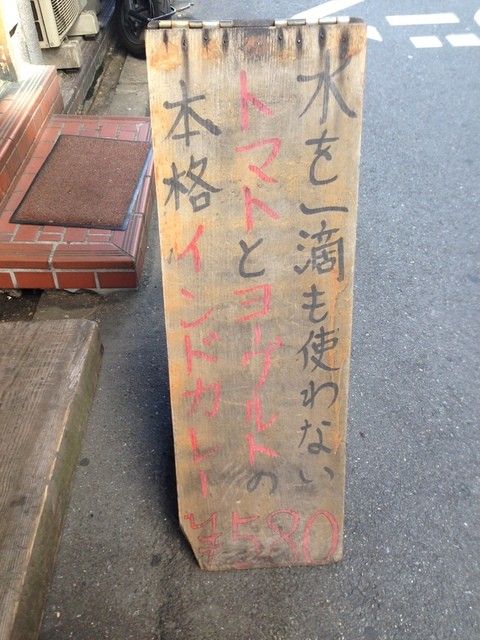 水を一滴も使わない
トマトとヨーグルトの
本格インドカレー
¥580